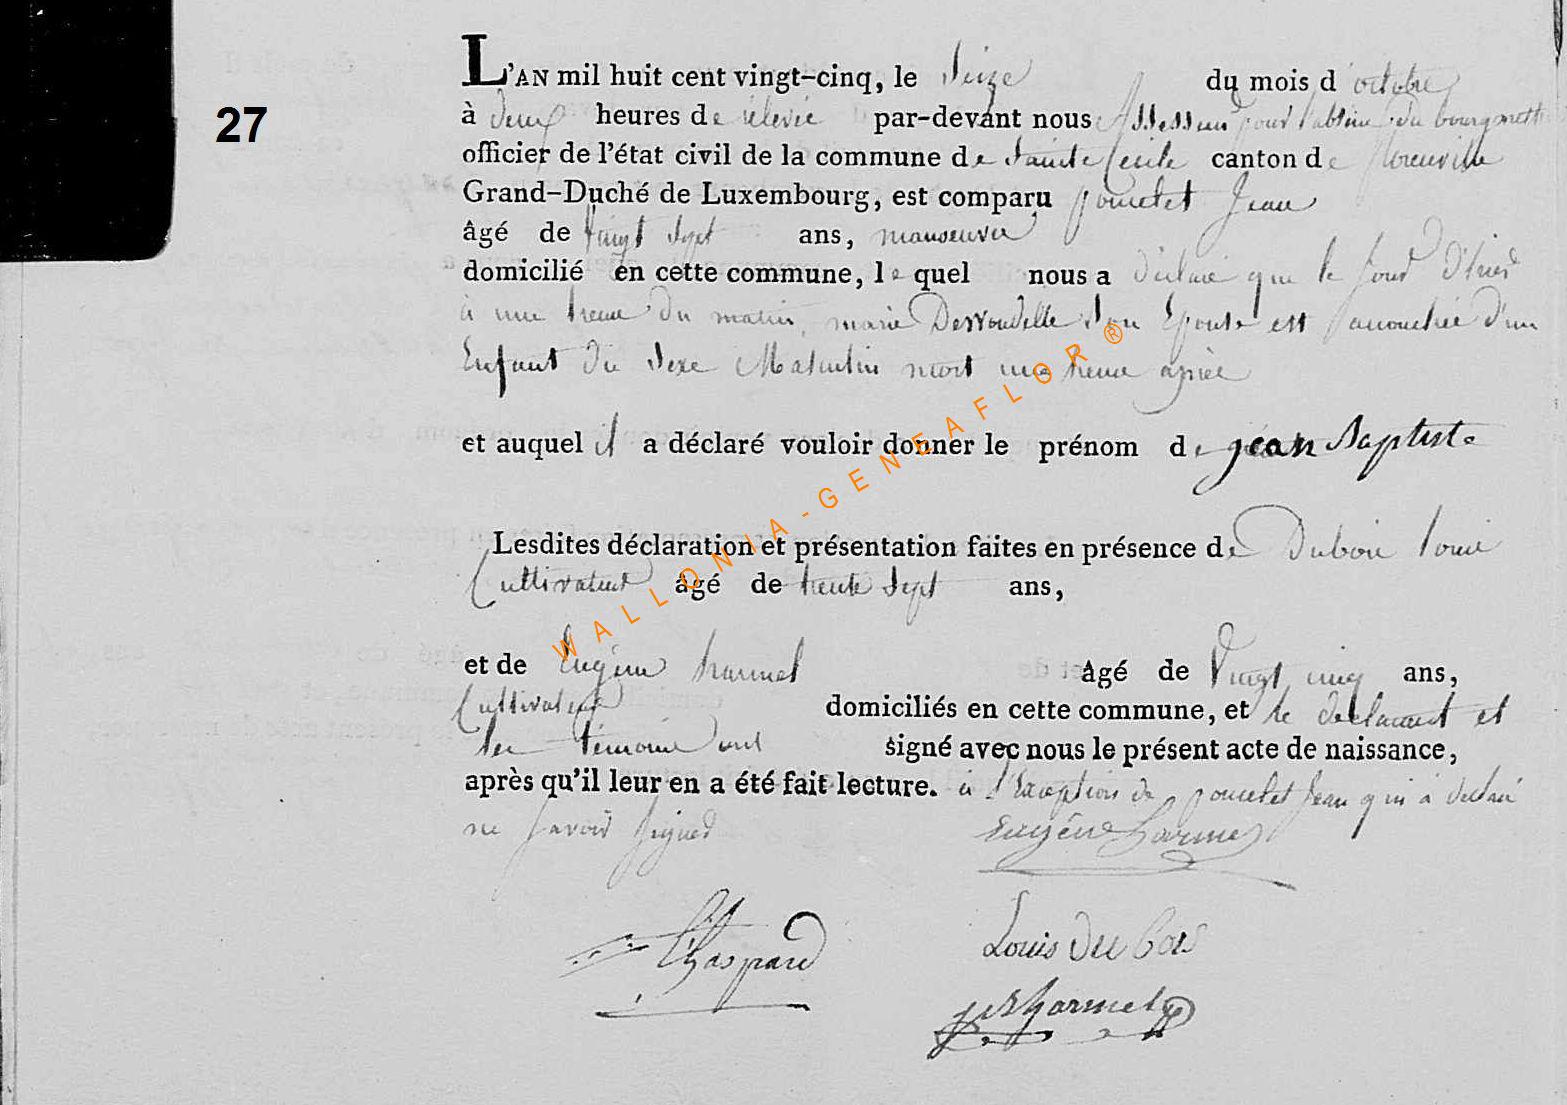 27
L'AN mil huit cent vingt-cinq, le Seize du mois d'octobre
à deux heures de relevée par-devant nous Assesseur pour l'absence du bourgmestre
officier de l'état civil de la commune de Sainte Cecile canton de florenville
Grand-Duché de Luxembourg, est comparu poncelet Jean
âgé de vingt sept ans, manoeuvre
domicilié en cette commune, lequel nous a déclaré que le jour d'hier
à une heure du matin, marie Desroudelle Son Epouse est accouchée d'un
Enfant du Sexe Masculin mort une heure après
et auquel il a déclaré vouloir donner le prénom de jean Baptiste
Lesdites déclaration et présentation faites en présence de Dubois louis
Cultivateur âgé de trente Sept ans,
et de Eugène harmel âgé de Vingt cinq ans,
Cultivateur domiciliés en cette commune, et le declarant et
les témoins ont signé avec nous le présent acte de naissance,
après qu'il leur en a été fait lecture. à l'Exception de poncelet Jean qui à declaré
ne Savoir Signer
Eugène harmel
Chaspard
Louis Du bois
harmel
WALLONIA-GENEAFLOR®